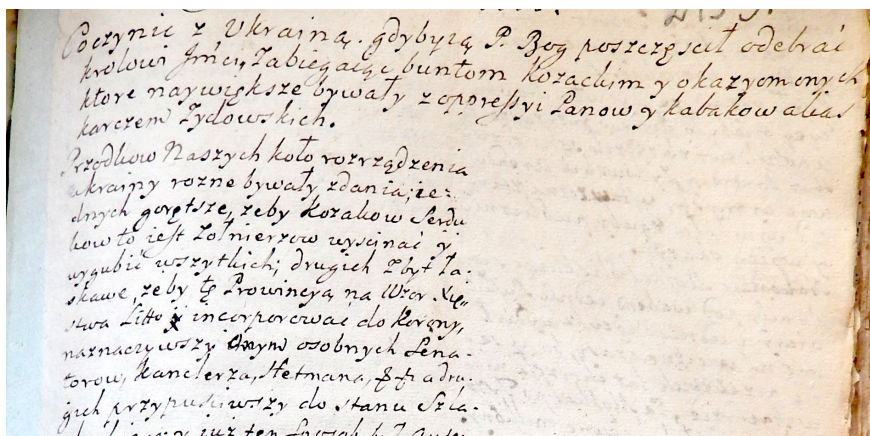 Poczynic z Ukrainą. gdybyią P. Bog poszczęscił odebrać
krolowi Jmći, Zabiegaiąc buntom Kozackim y okazyom onych
ktore naywiększe bywały z oppressyi Panow y kabakow alias
karczem Zydowskich.
Przodkow Naszych koło rozrządzenia
ukrainy rozne bywały zdania; ie:
dnych gorętsze, zeby Kozakow Serdu
kow to iest Zołnierzow wyscinać y
wygubić wszytkich; drugich Zbyt ła-
skawe, zeby tę Prowincyą na Wzor Xię-
stwa Litto incorporować do Korony,
naznaczywszy onym osobnych Sena-
torow, Kanclerza, Hetmana, & a dru-
gich przypusciwszy do stanu Szla-
iuz ten sposob